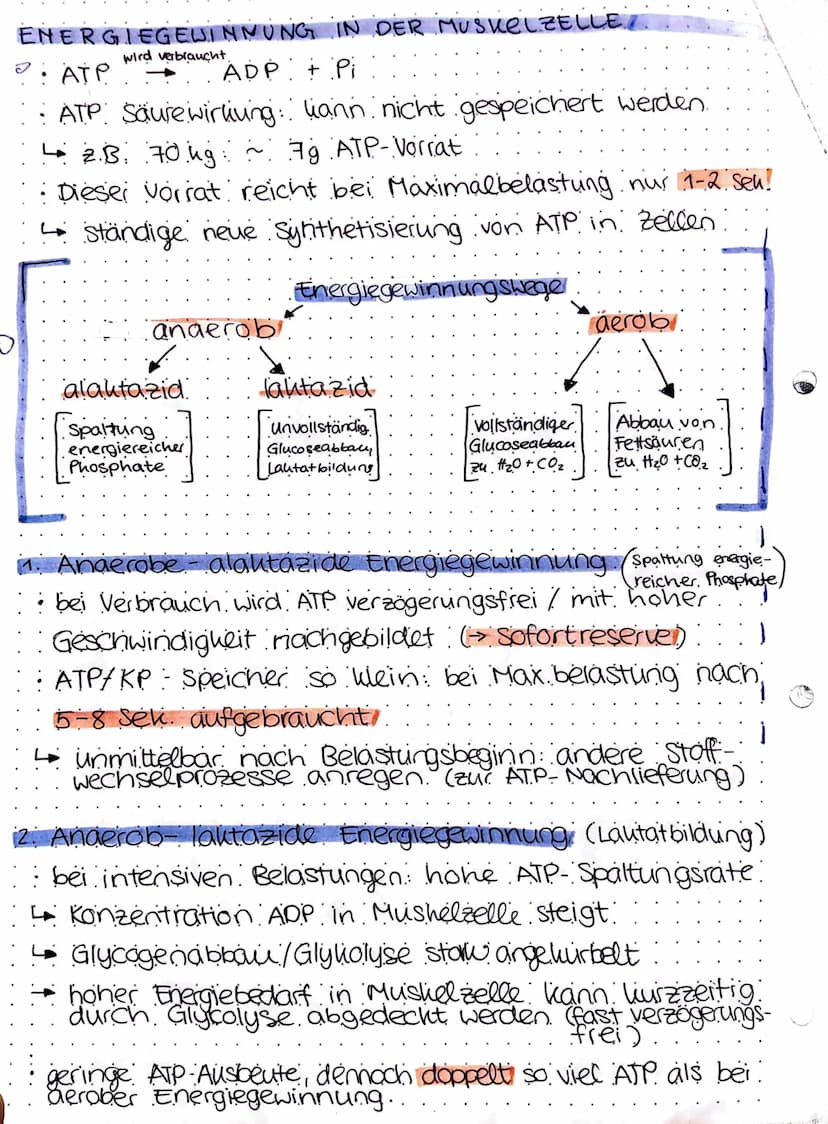 ENERGIEGEWINNUNG IN DER MUSKELZELLE
wird verbraucht
· ATP → ADP + Pi
· ATP Säurewirkung: kann nicht gespeichert werden
↳ z.B. 70 kg: ~ 7g ATP-Vorrat
· Dieser Vorrat reicht bei Maximalbelastung nur 1-2 Sek!
↳ ständige neue Synthetisierung von ATP in Zellen
Energiegewinnungswege
anaerob aerob
alaktazid laktazid
Spaltung energiereicher Phosphate
Unvollständig. Glucoseabbau, Laktatbildung
Vollständiger Glucoseabbau zu H₂O + CO₂
Abbau von Fettsäuren zu H₂O + CO₂
1. Anaerobe - alaktazide Energiegewinnung (Spaltung energie-
reicher Phosphate)
· bei Verbrauch wird ATP verzögerungsfrei / mit hoher
Geschwindigkeit nachgebildet (→ Sofortreserve)
· ATP/KP - Speicher so klein: bei Max.belastung nach
5-8 Sek. aufgebraucht
↳ unmittelbar nach Belastungsbeginn: andere Stoff-
wechselprozesse anregen (zur ATP-Nachlieferung)
2. Anaerob- laktazide Energiegewinnung (Laktatbildung)
· bei intensiven Belastungen: hohe ATP-Spaltungsrate
↳ Konzentration ADP in Muskelzelle steigt
↳ Glycogenabbau/Glykolyse stark angekurbelt
→ hoher Energiebedarf in Muskelzelle kann kurzzeitig
durch Glycolyse abgedeckt werden (fast verzögerungs-
frei)
· geringe ATP-Ausbeute, dennoch doppelt so viel ATP als bei
aerober Energiegewinnung